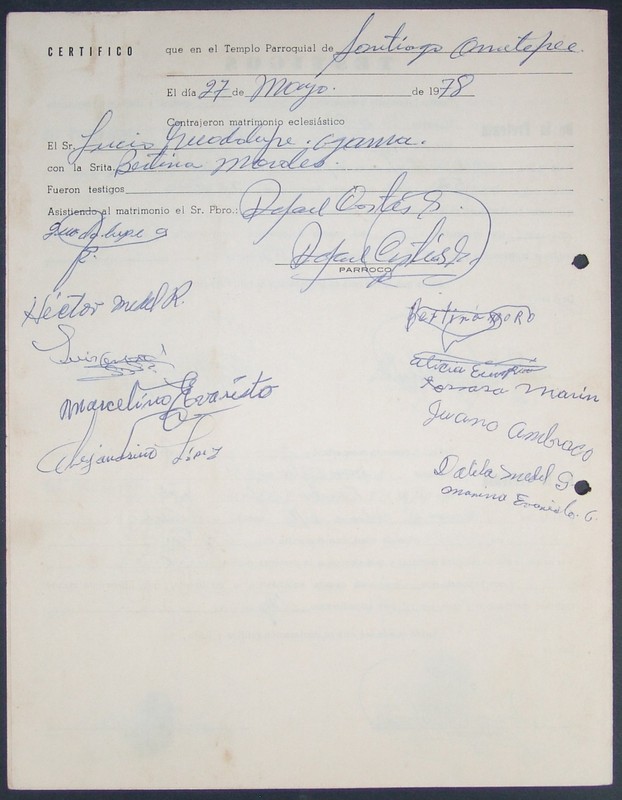 CERTIFICO que en el Templo Parroquial de Santiago Ometepec.
El día 27 de Mayo. de 1978
Contrajeron matrimonio eclesiástico
El Sr. Lucio Guadalupe.
con la Srita. Bertina Morales.
Fueron testigos
Asistiendo al matrimonio el Sr. Pbro.: Rafael G.
Guadalupe G
Rafael
PARROCO
Héctor Medel R.
Luis
Marcelino Evaristo
Alejandrino López
Bertina
Alicia
Tomasa Marín
Juana Ambrocio
Dalila Medel G.
Marina Evaristo. G.